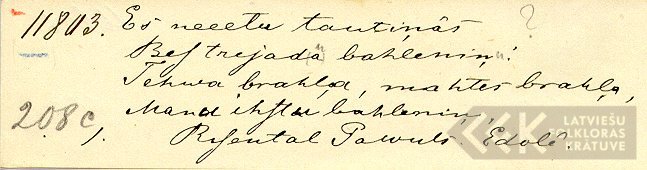 11803. Es neeetu tautiņâs ?
Bes trejadu bahleniņu:
Tehwa brahļa, mahtes brahļa,
Manu ihstu bahleniņ,
208c,1. Rosental Pawuls. Edolê.
LATVIEŠU
FOLKLORAS
KRĀTUVE